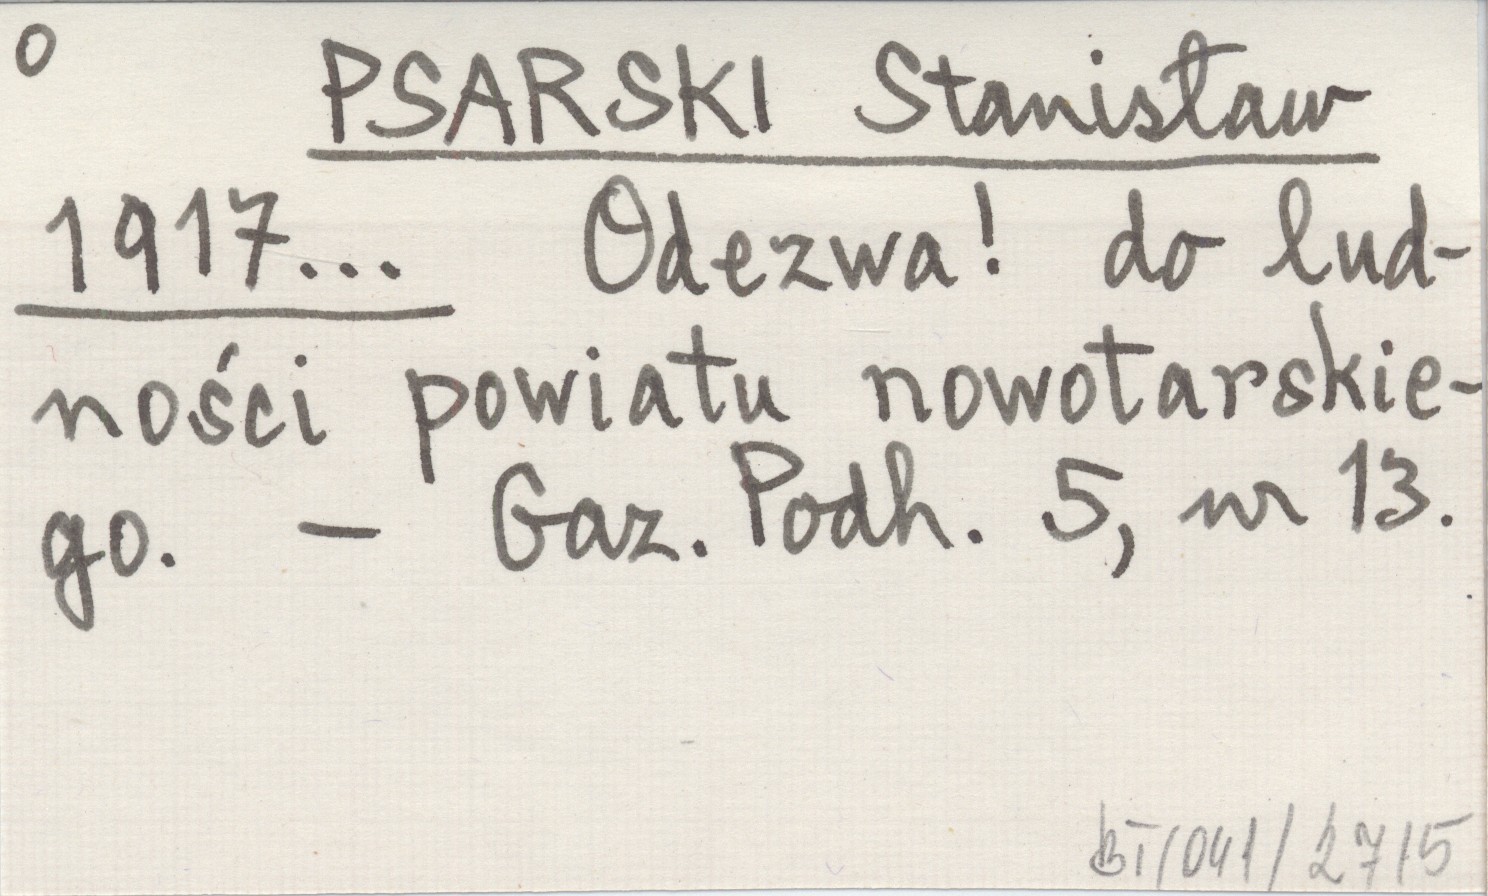 o
PSARSKI Stanisław
1917... Odezwa! do lud-
ności powiatu nowotarskie-
go. — Gaz. Podh. 5, nr 13.
BT/041/2715